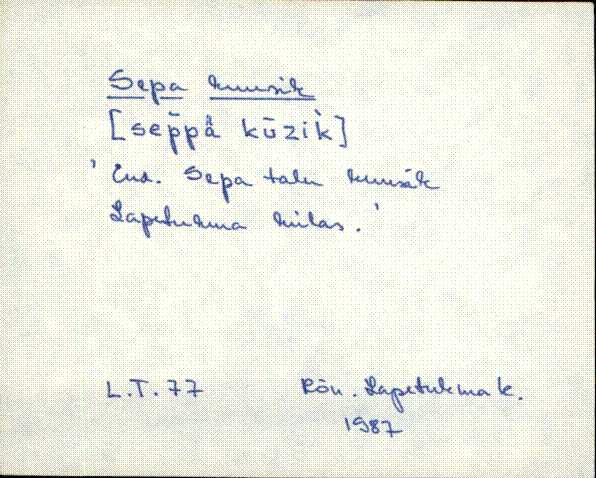 Sepa kuusik
[sep̄pȧ̂ kūzik̀]
' End. Sepa talu kuusik
Lapetukma külas. '
L.T. 77
Rõu. Lapetukma k.
1987